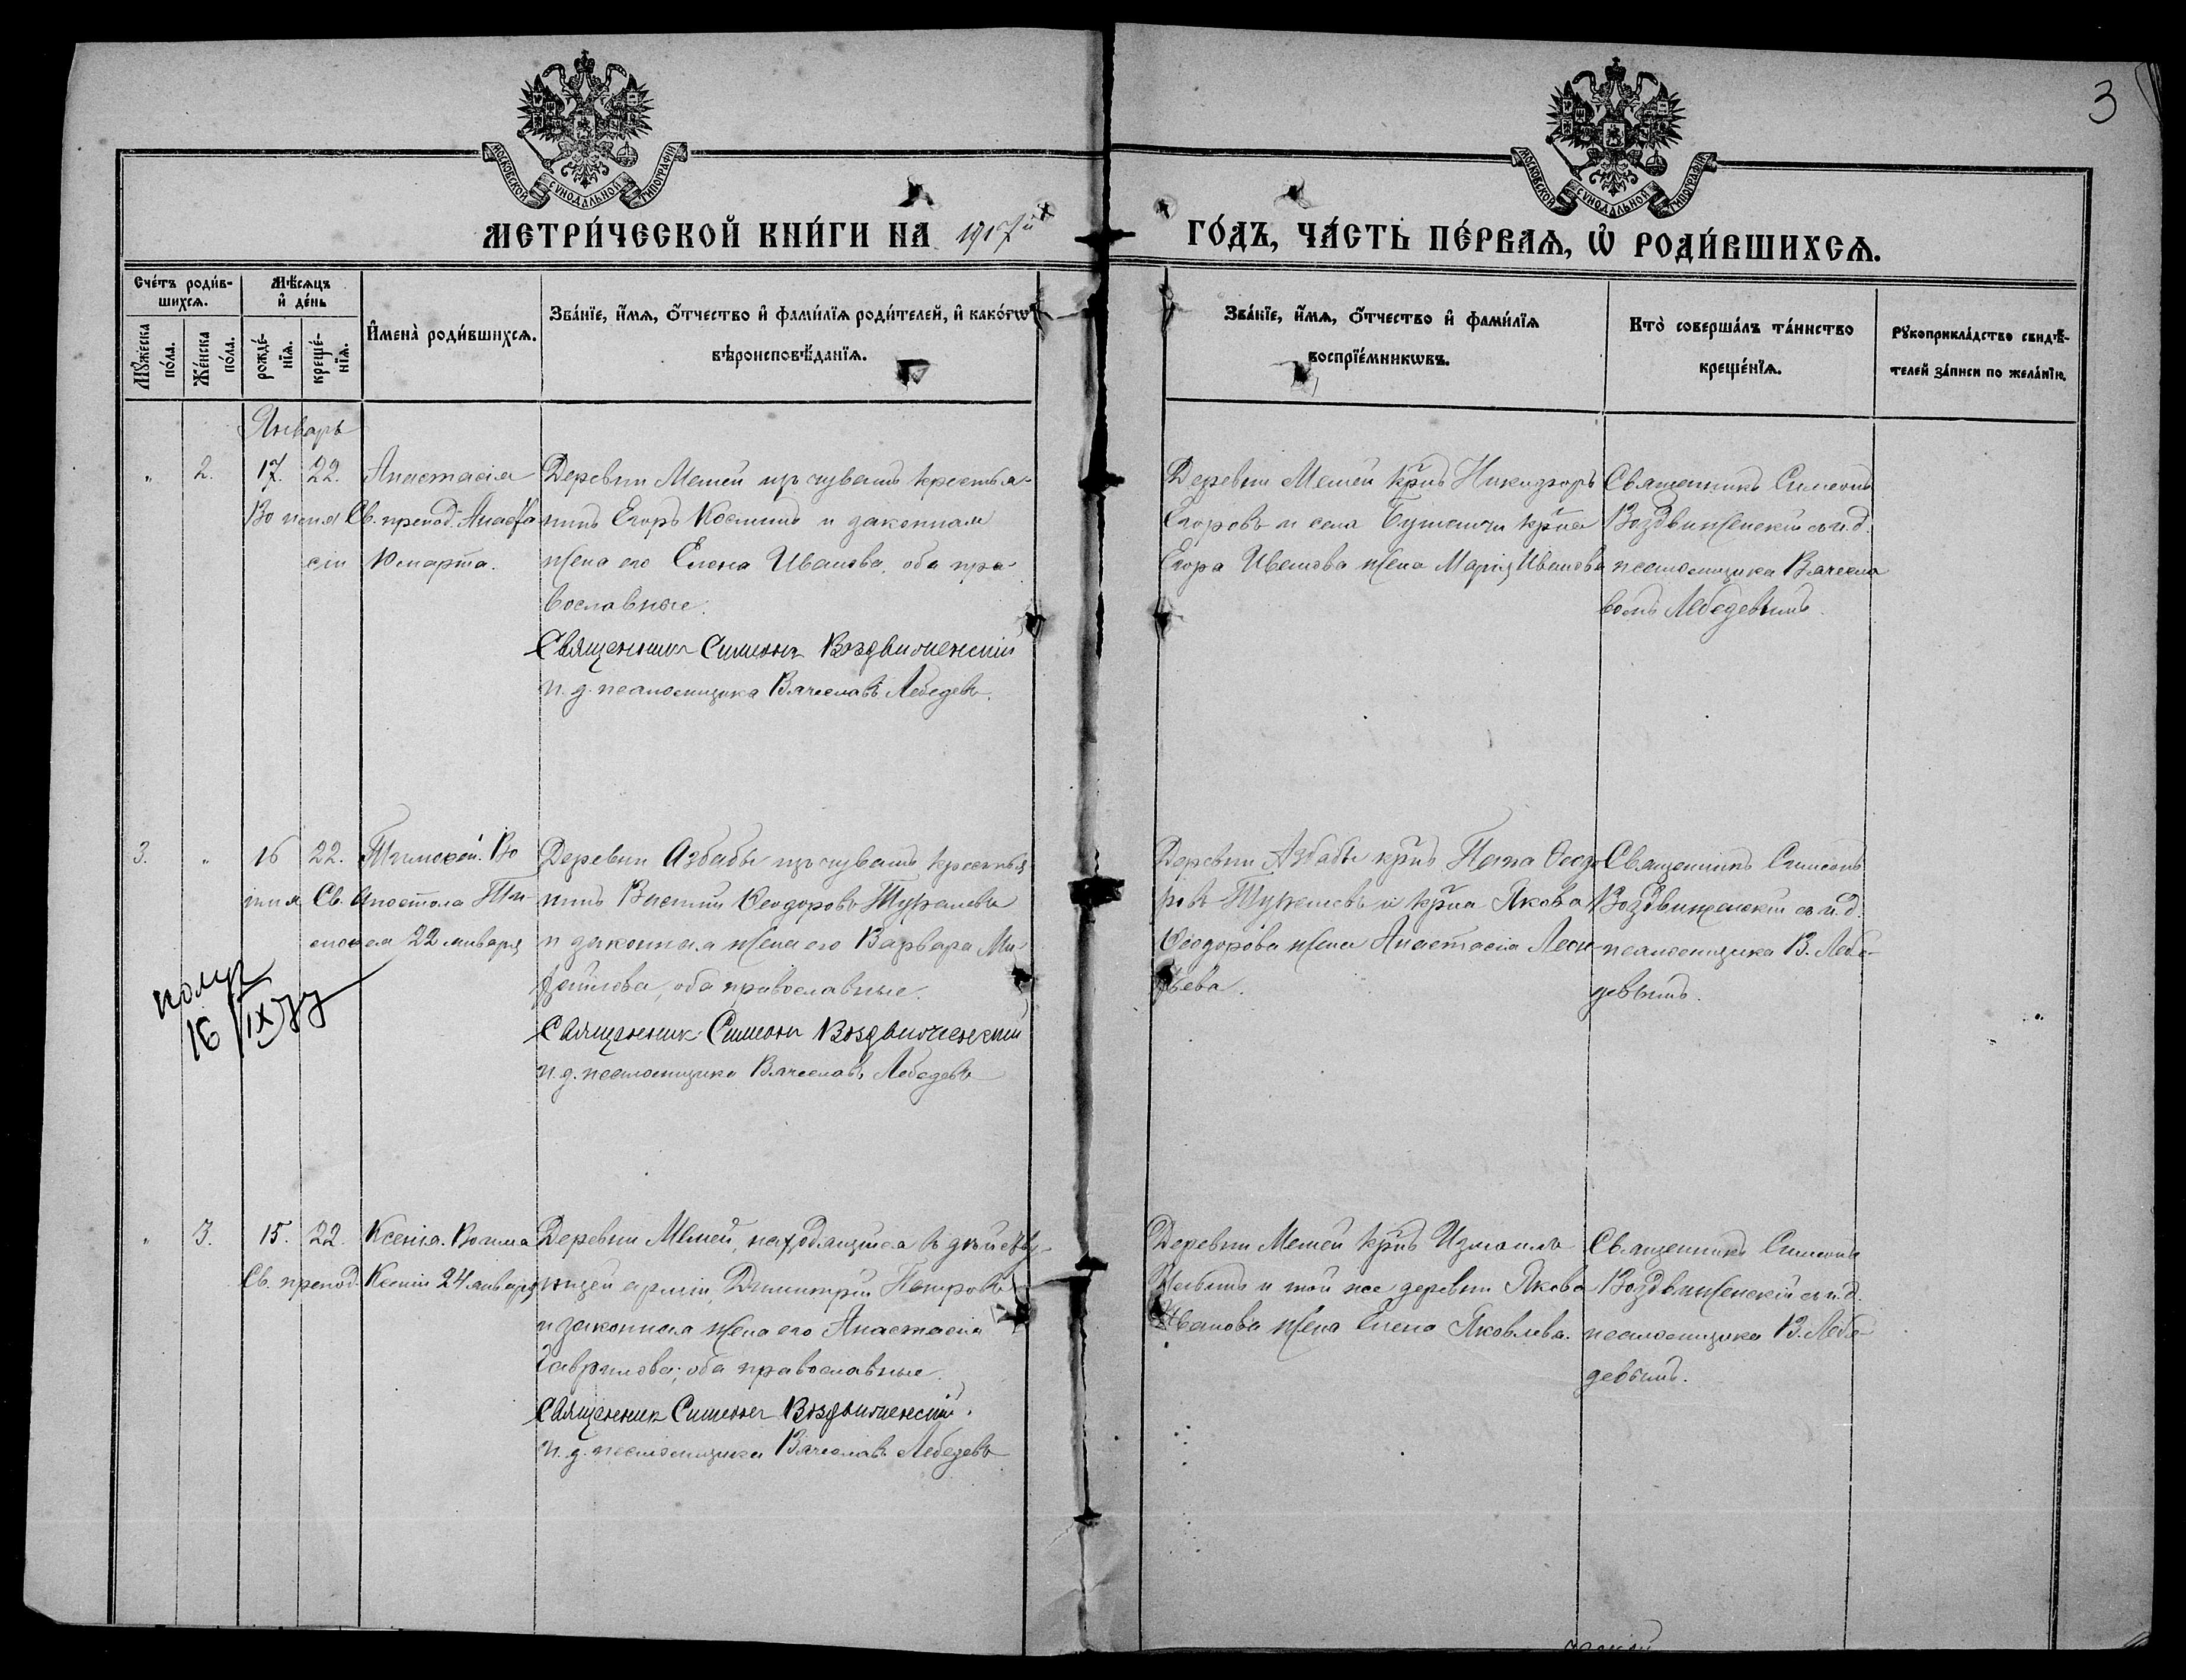 3
МОСКОВСКОЙ СѴНОДАЛЬНОЙ ТИПОГРАФІИ
МОСКОВСКОЙ СѴНОДАЛЬНОЙ ТИПОГРАФІИ
МЕТРИ́ЧЕСКОЙ КНИ́ГИ НА 1917й ГО́ДЪ, ЧА́СТЬ ПЕ́РВАЯ, Ѡ РОДИ́ВШИХСЯ.
Счетъ роди́вшихся.
Мѣсяцъ и де́нь
Мꙋжеска по́ла.
Же́нска по́ла.
рожде́нїя.
креще́нїя.
Имена̀ роди́вшихся.
Зва́нїе, и́мя, о́тчество и фами́лїя роди́телей, и како́гѡ
вѣроисповѣ́данїя.
Зва́нїе, и́мя, о́тчество и фами́лїя
воспрїе́мникѡвъ.
Кто̀ соверша́лъ та́инство
креще́нїя.
Рꙋкоприкла́дство свидѣ́-
телей за́писи по жела́нїю.
Январь
" 2. 17. 22. Анастасія
Во имя Св. препод. Анаста
сіи 10 марта.
Деревни Мемей изъ чувашъ крестья-
нинъ Егоръ Косминъ и законная
жена его Елена Иванова, оба пра-
вославные.
Священникъ Симеонъ Воздвиженскій
и. д. псаломщика Вячеславъ Лебедевъ.
Деревни Мемей кр̃нъ Никифоръ
Егоровъ и села кр̃на
Егора Иванова жена Марія Иванова
Священникъ Симеонъ
Воздвиженскій съ и. д.
псаломщика Вячесла
вомъ Лебедевымъ.
3. " 16 22. Тимофей. Во
имя Св. Апостола Ти-
мофея 22 января
Деревни Азбабы изъ чувашъ крестья
нинъ Василій Ѳеодоровъ
и законная жена его Варвара Ми-
хайлова, оба православные.
Священникъ Симеонъ Воздвиженскій
и. д. псаломщика Вячеславъ Лебедевъ
Деревни Азбабы кр̃нъ Ѳеодо
ровъ и кр̃на Якова
Ѳеодорова жена Анастасія Леон-
тьева.
Священникъ Симеонъ
Воздвиженскій съ и. д.
псаломщика В. Лебе-
девымъ.
16/IX
" 3. 15. 22. Ксенія. Во имя
Св. препод. Ксеніи 24 января
Деревни Мемей, находящійся въ дѣйству-
ющей арміи, Димитрій Петровъ
и законная жена его Анастасія
Гаврилова; оба православные.
Священникъ Симеонъ Воздвиженскій.
и. д. псаломщика Вячеславъ Лебедевъ
Деревни Мемей кр̃нъ Измаилъ
и той же деревни Якова
Иванова жена Елена Яковлева.
Священникъ Симеонъ
Воздвиженскій съ и. д.
псаломщика В. Лебе-
девымъ.